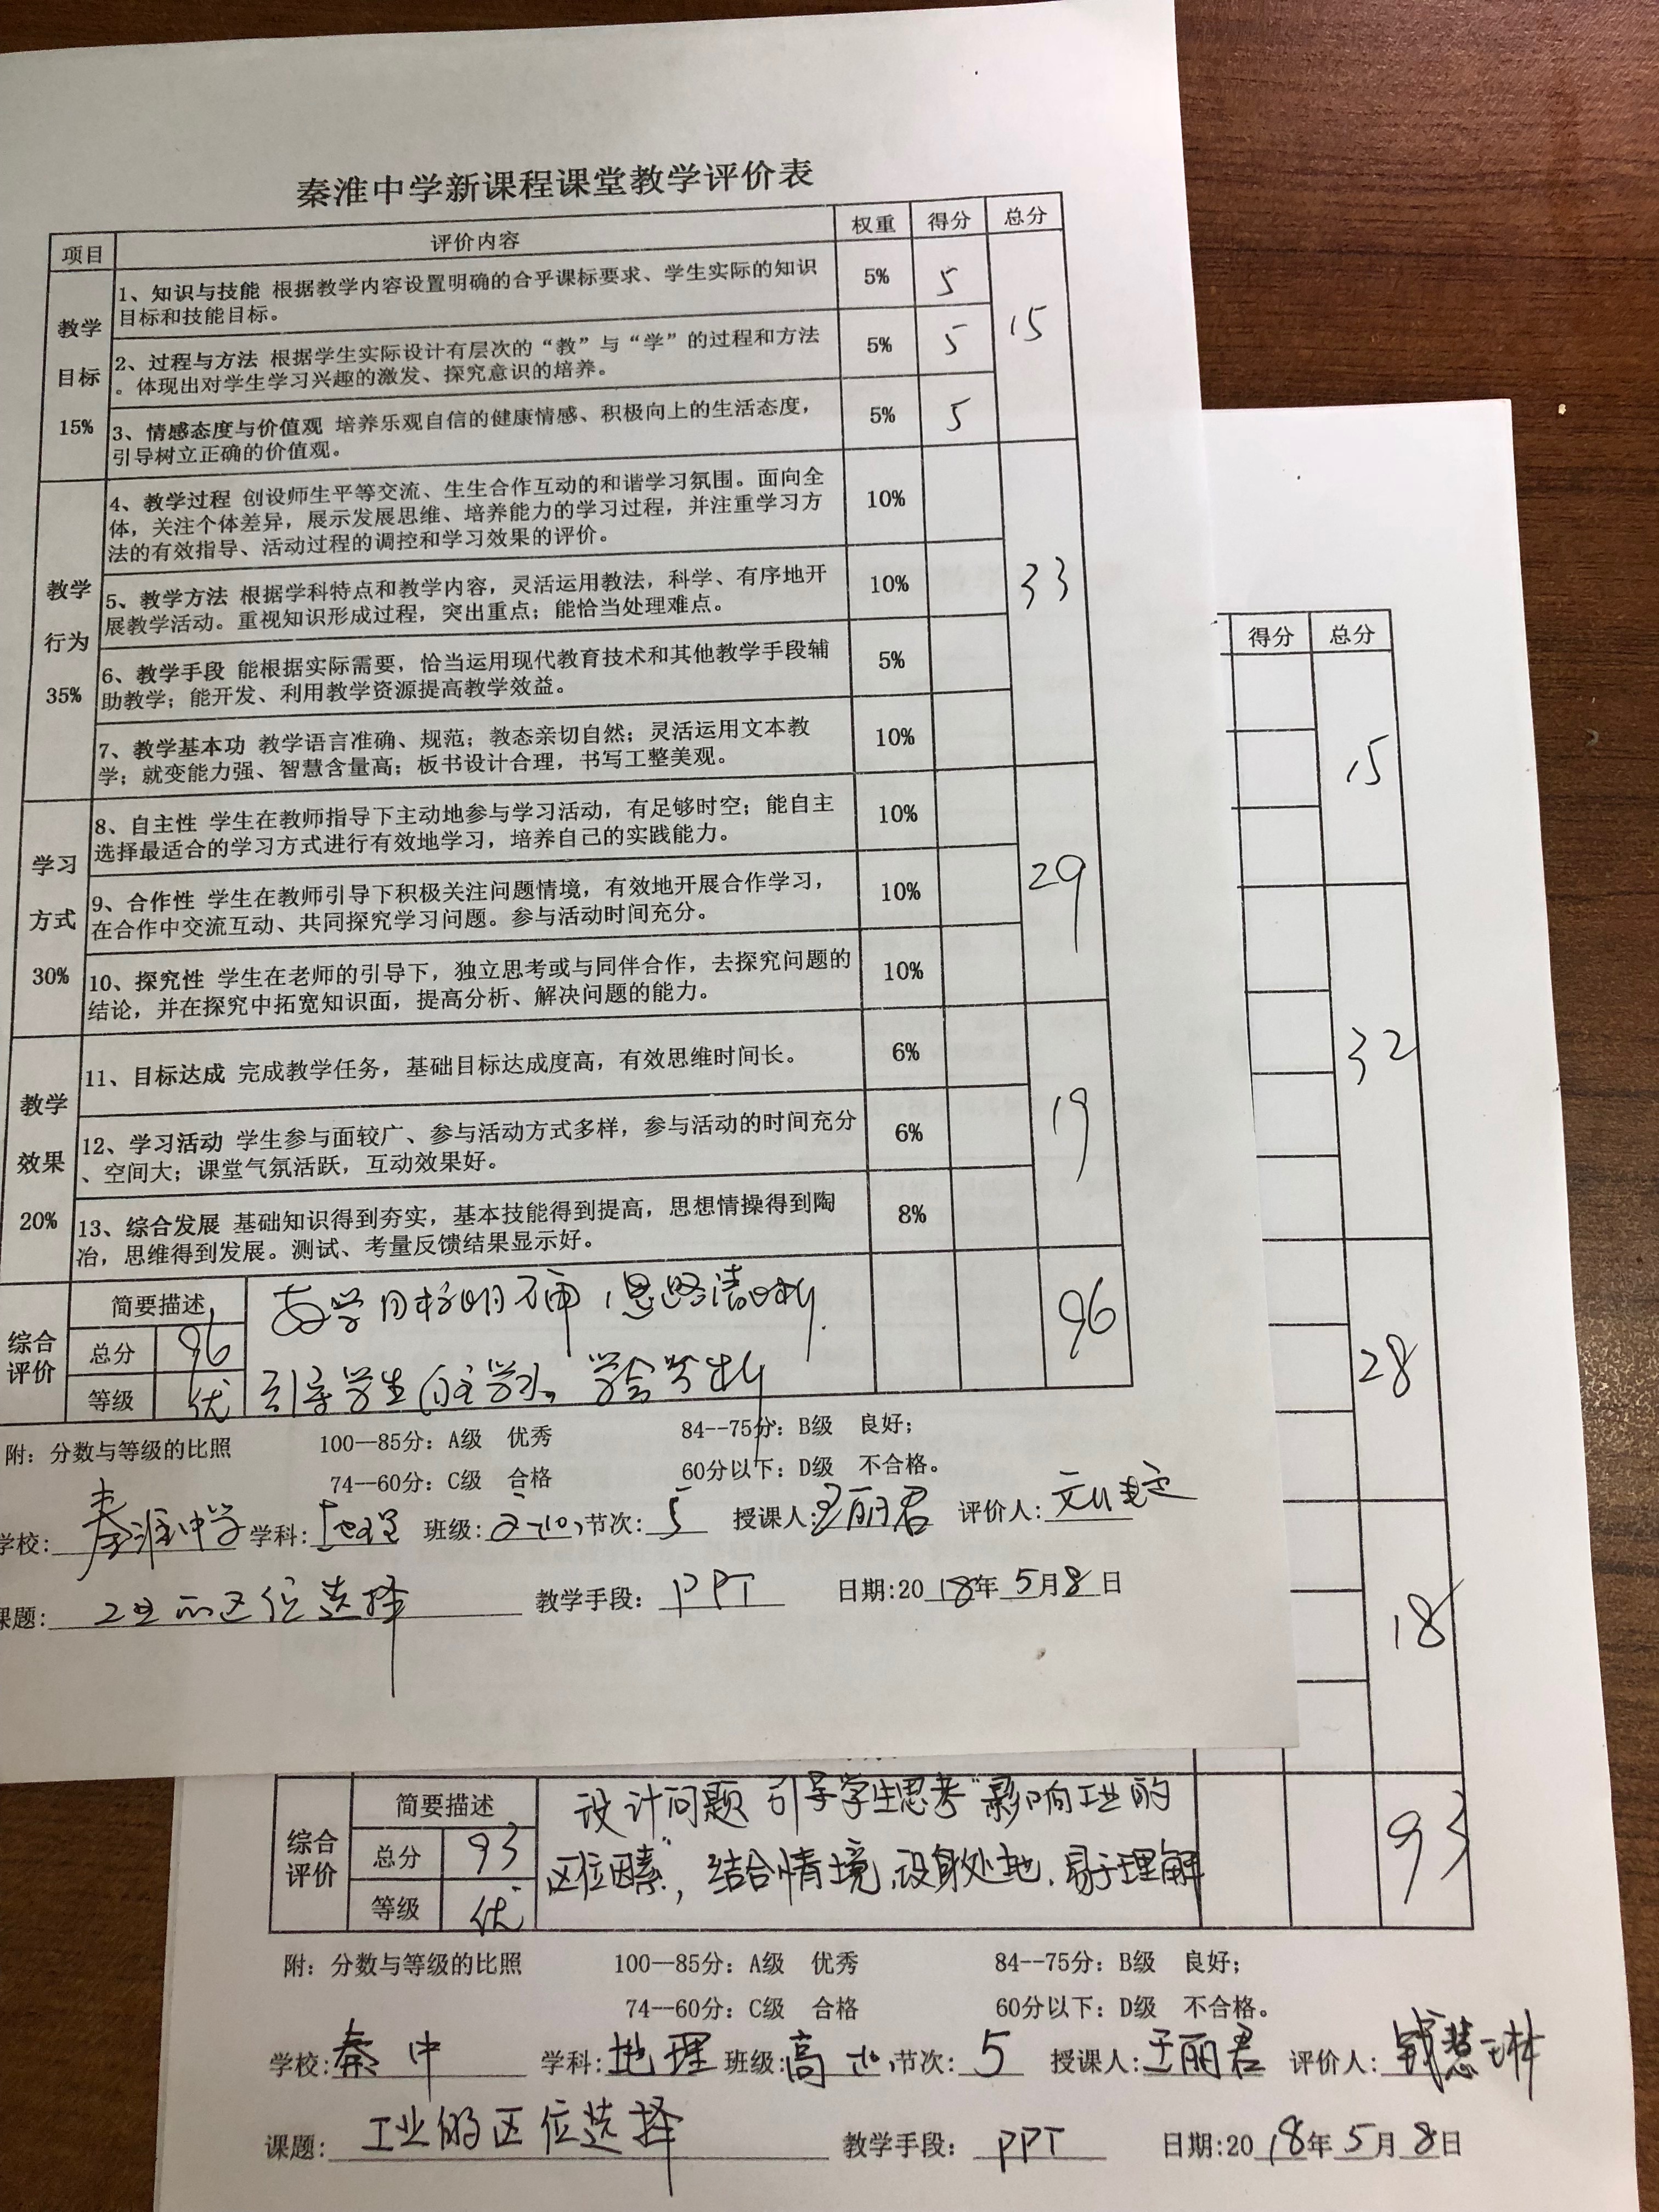 秦淮中学新课程课堂教学评价表
项目 评价内容 权重 得分 总分
教学
目标
15%
1、知识与技能 根据教学内容设置明确的合乎课标要求、学生实际的知识
目标和技能目标。
5% 5
2、过程与方法 根据学生实际设计有层次的“教”与“学”的过程和方法
。体现出对学生学习兴趣的激发、探究意识的培养。
5% 5
3、情感态度与价值观 培养乐观自信的健康情感、积极向上的生活态度，
引导树立正确的价值观。
5% 5
15
教学
行为
35%
4、教学过程 创设师生平等交流、生生合作互动的和谐学习氛围。面向全
体，关注个体差异，展示发展思维、培养能力的学习过程，并注重学习方
法的有效指导、活动过程的调控和学习效果的评价。
10%
5、教学方法 根据学科特点和教学内容，灵活运用教法，科学、有序地开
展教学活动。重视知识形成过程，突出重点；能恰当处理难点。
10%
6、教学手段 能根据实际需要，恰当运用现代教育技术和其他教学手段辅
助教学；能开发、利用教学资源提高教学效益。
5%
7、教学基本功 教学语言准确、规范；教态亲切自然；灵活运用文本教
学；就变能力强、智慧含量高；板书设计合理，书写工整美观。
10%
33
学习
方式
30%
8、自主性 学生在教师指导下主动地参与学习活动，有足够时空；能自主
选择最适合的学习方式进行有效地学习，培养自己的实践能力。
10%
9、合作性 学生在教师引导下积极关注问题情境，有效地开展合作学习，
在合作中交流互动、共同探究学习问题。参与活动时间充分。
10%
10、探究性 学生在老师的引导下，独立思考或与同伴合作，去探究问题的
结论，并在探究中拓宽知识面，提高分析、解决问题的能力。
10%
29
教学
效果
20%
11、目标达成 完成教学任务，基础目标达成度高，有效思维时间长。
6%
12、学习活动 学生参与面较广、参与活动方式多样，参与活动的时间充分
、空间大；课堂气氛活跃，互动效果好。
6%
13、综合发展 基础知识得到夯实，基本技能得到提高，思想情操得到陶
冶，思维得到发展。测试、考量反馈结果显示好。
8%
19
综合
评价
简要描述
总分 96
等级 优
教学目标明确，思路清晰，
引导学生自主学习，学会分析
96
附：分数与等级的比照 100—85分：A级 优秀 84--75分：B级 良好；
74—60分：C级 合格 60分以下：D级 不合格。
学校：秦淮中学 学科：地理 班级： 节次：5 授课人：王丽君 评价人：
课题：工业的区位选择 教学手段：PPT 日期：2018年5月8日
得分 总分
15
32
28
18
综合
评价
简要描述
总分 93
等级 优
设计问题 引导学生思考“影响工业的
区位因素”，结合情境，设身处地，易于理解
93
附：分数与等级的比照 100—85分：A级 优秀 84--75分：B级 良好；
74—60分：C级 合格 60分以下：D级 不合格。
学校：秦中 学科：地理 班级：高 节次：5 授课人：王丽君 评价人：钱慧琳
课题：工业的区位选择 教学手段：PPT 日期：2018年5月8日